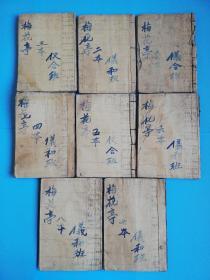 梅花亭
三本
仪合班
梅花亭
二本
儀和班
梅花亭
儀合班
梅花亭
四本
儀和班
梅花亭
五本
仪合班
梅花亭
六本
儀和班
梅花亭
八本
儀和班
梅花亭
七本
儀和班